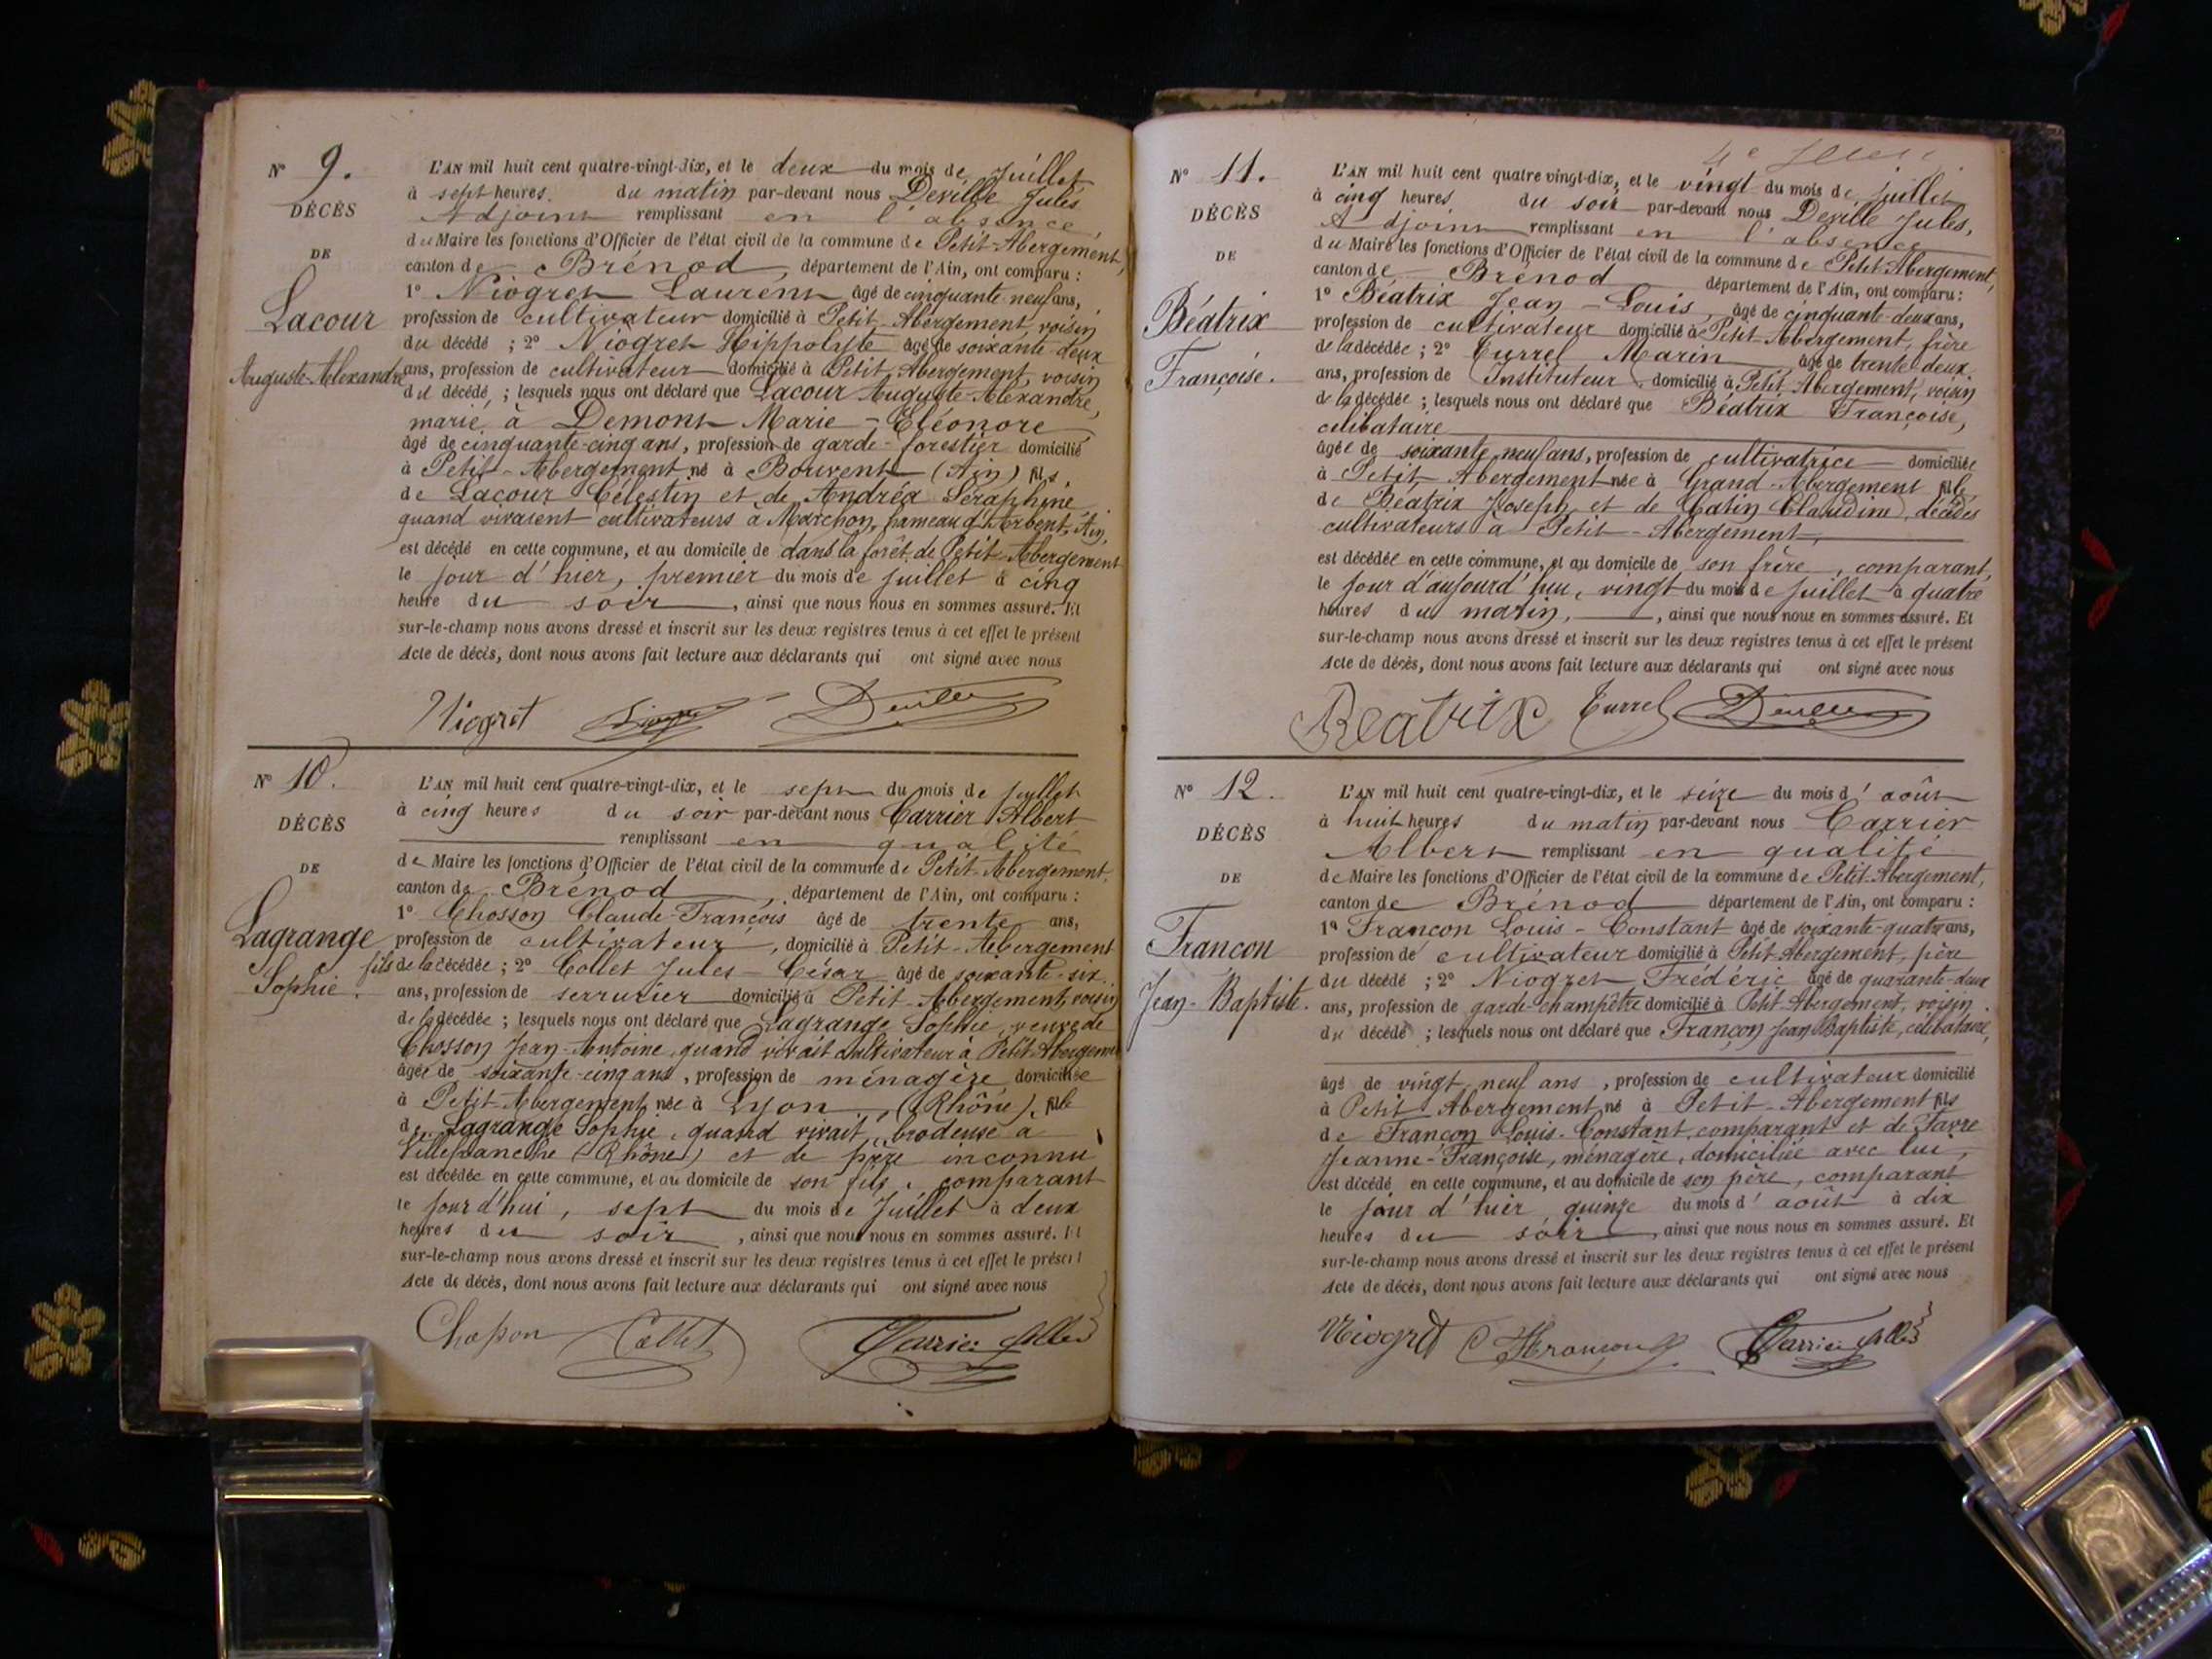 N° 9.
DÉCÈS
DE
Lacour
Auguste-Alexandre
L'AN mil huit cent quatre-vingt-dix, et le deux du mois de Juillet
à sept heures du matin par-devant nous Deville Jules
Adjoint remplissant en l'absence
du Maire les fonctions d'Officier de l'état civil de la commune de Petit-Abergement,
canton de Brénod, département de l'Ain, ont comparu :
1° Niogret Laurent âgé de cinquante neuf ans,
profession de cultivateur domicilié à Petit-Abergement, voisin
du décédé ; 2° Niogret Hippolyte âgé de soixante-deux
ans, profession de cultivateur domicilié à Petit-Abergement, voisin
du décédé ; lesquels nous ont déclaré que Lacour Auguste-Alexandre,
marié à Demont Marie-Eléonore
âgé de cinquante-cinq ans, profession de garde-forestier domicilié
à Petit-Abergement né à Bouvent (Ain) fils
de Lacour Célestin et de Andréa Séraphine
quand vivaient cultivateurs à Marchon, hameau d'Arbent, Ain,
est décédé en cette commune, et au domicile de dans la forêt de Petit-Abergement
le jour d'hier, premier du mois de juillet à cinq
heure du soir, ainsi que nous nous en sommes assuré. Et
sur-le-champ nous avons dressé et inscrit sur les deux registres tenus à cet effet le présent
Acte de décès, dont nous avons fait lecture aux déclarants qui ont signé avec nous
Niogret Deville
N° 10.
DÉCÈS
DE
Lagrange
Sophie.
L'AN mil huit cent quatre-vingt-dix, et le sept du mois de juillet
à cinq heures du soir par-devant nous Carrier Albert
remplissant en qualité
de Maire les fonctions d'Officier de l'état civil de la commune de Petit-Abergement,
canton de Brénod, département de l'Ain, ont comparu :
1° Chosson Claude-François âgé de trente ans,
profession de cultivateur, domicilié à Petit-Abergement
fils de la décédée ; 2° Collet Jules-César âgé de soixante-six
ans, profession de serrurier domicilié à Petit-Abergement, voisin
de la décédée ; lesquels nous ont déclaré que Lagrange Sophie, veuve de
Chosson Jean-Antoine, quand vivait cultivateur à Petit-Abergement
âgée de soixante-cinq ans, profession de ménagère domiciliée
à Petit-Abergement née à Lyon (Rhône), fille
de Lagrange Sophie, quand vivait, brodeuse à
Villefranche (Rhône) et de père inconnu
est décédée en cette commune, et au domicile de son fils, comparant
le jour d'hui, sept du mois de Juillet à deux
heures du soir, ainsi que nous nous en sommes assuré. Et
sur-le-champ nous avons dressé et inscrit sur les deux registres tenus à cet effet le présent
Acte de décès, dont nous avons fait lecture aux déclarants qui ont signé avec nous
Chosson Collet Carrier Albert
N° 11.
DÉCÈS
DE
Béatrix
Françoise.
L'AN mil huit cent quatre vingt-dix, et le vingt du mois de juillet
à cinq heures du soir par-devant nous Deville Jules,
Adjoint remplissant en l'absence
du Maire les fonctions d'Officier de l'état civil de la commune de Petit-Abergement,
canton de Brénod département de l'Ain, ont comparu :
1° Béatrix Jean-Louis, âgé de cinquante-deux ans,
profession de cultivateur domicilié à Petit-Abergement, frère
de la décédée ; 2° Turrel Marin âgé de trente-deux
ans, profession de Instituteur, domicilié à Petit-Abergement, voisin
de la décédée ; lesquels nous ont déclaré que Béatrix Françoise,
célibataire
âgée de soixante neuf ans, profession de cultivatrice domiciliée
à Petit-Abergement née à Grand-Abergement fille
de Béatrix Joseph et de Catin Claudine, décédés
cultivateurs à Petit-Abergement,
est décédée en cette commune, et au domicile de son frère, comparant,
le jour d'aujourd'hui, vingt du mois de juillet à quatre
heures du matin, ainsi que nous nous en sommes assuré. Et
sur-le-champ nous avons dressé et inscrit sur les deux registres tenus à cet effet le présent
Acte de décès, dont nous avons fait lecture aux déclarants qui ont signé avec nous
Beatrix Turrel Deville
N° 12.
DÉCÈS
DE
Françon
Jean-Baptiste.
L'AN mil huit cent quatre-vingt-dix, et le seize du mois d'août
à huit heures du matin par-devant nous Carrier
Albert remplissant en qualité
de Maire les fonctions d'Officier de l'état civil de la commune de Petit-Abergement,
canton de Brénod département de l'Ain, ont comparu :
1° Françon Louis-Constant âgé de soixante-quatre ans,
profession de cultivateur domicilié à Petit-Abergement, père
du décédé ; 2° Niogret Frédéric âgé de quarante-deux
ans, profession de garde-champêtre domicilié à Petit-Abergement, voisin
du décédé ; lesquels nous ont déclaré que Françon Jean-Baptiste, célibataire,
âgé de vingt neuf ans, profession de cultivateur domicilié
à Petit-Abergement né à Petit-Abergement fils
de Françon Louis-Constant, comparant et de Favre
Jeanne-Françoise, ménagère, domiciliée avec lui,
est décédé en cette commune, et au domicile de son père, comparant
le jour d'hier quinze du mois d'août à dix
heures du soir, ainsi que nous nous en sommes assuré. Et
sur-le-champ nous avons dressé et inscrit sur les deux registres tenus à cet effet le présent
Acte de décès, dont nous avons fait lecture aux déclarants qui ont signé avec nous
Niogret Françon Carrier Albert